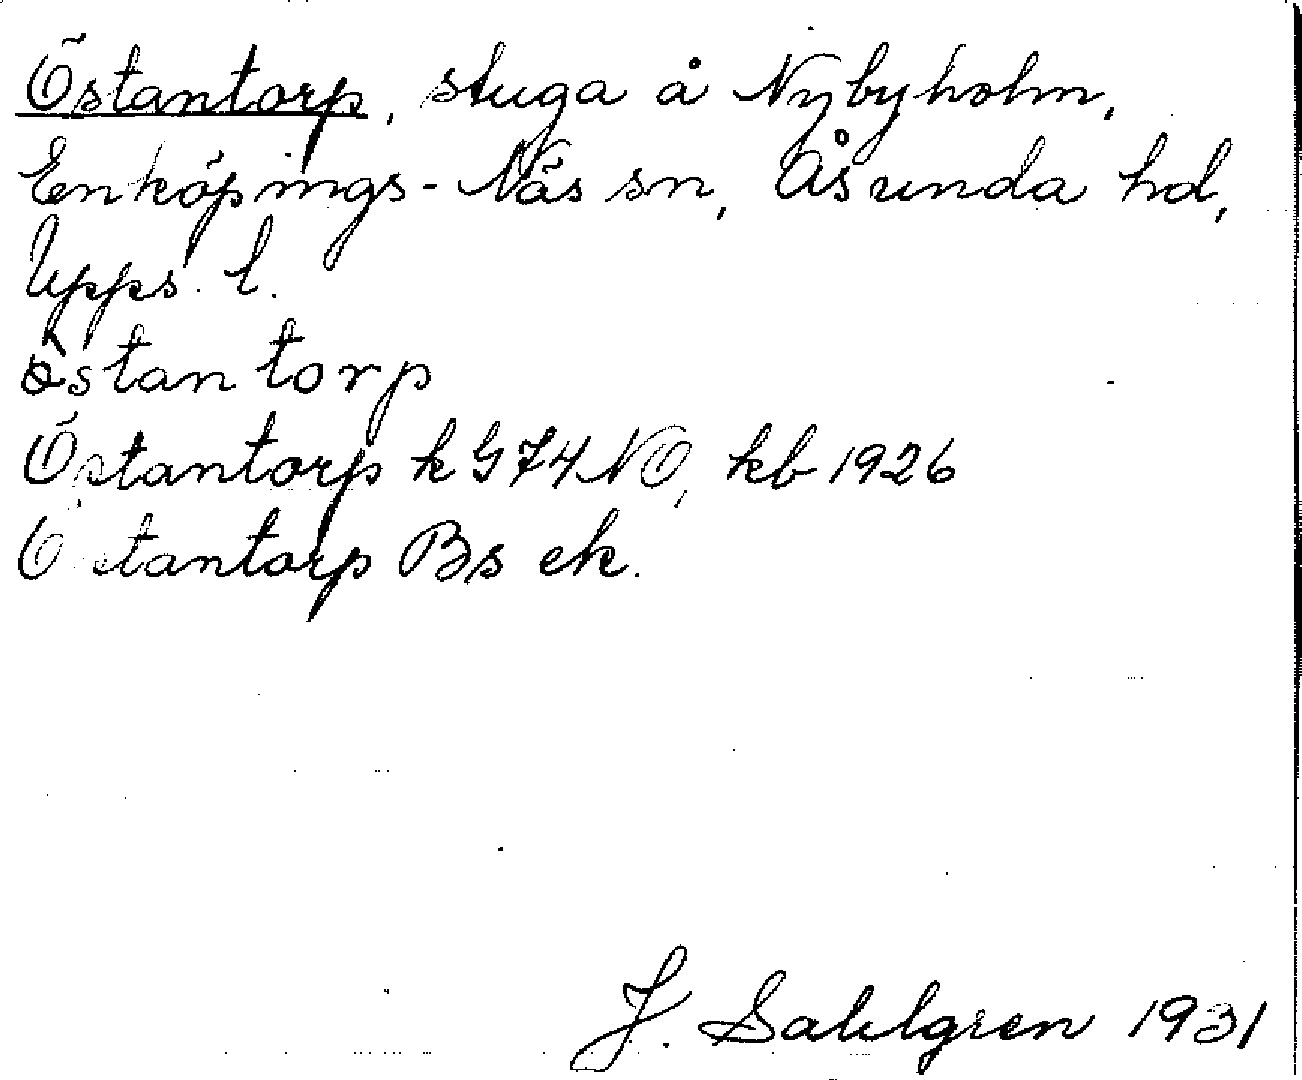 Östantorp, stuga å Nybyholm,
Enköpings-Näs sn, Åsunda hd,
Upps. l.
òstantorp
Östantorp k G74NO, kb 1926
Östantorp Bs ek.
J. Sahlgren 1931